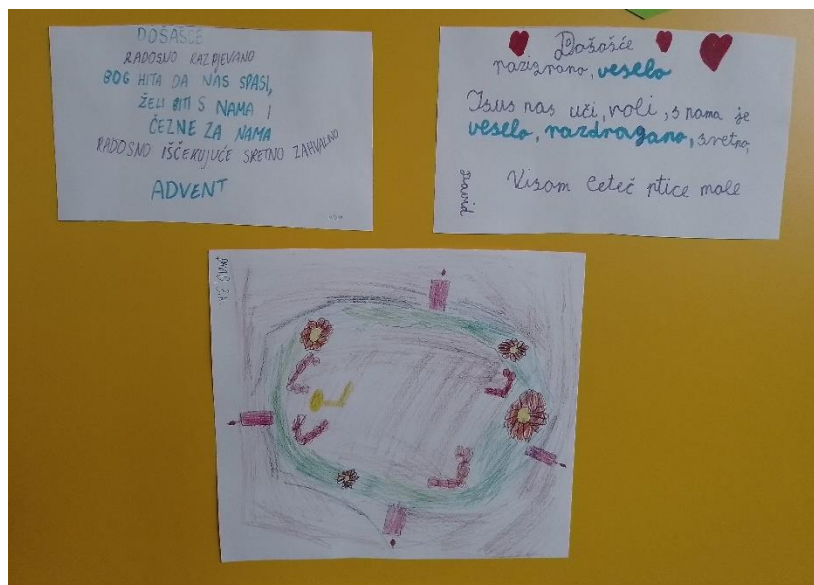 DOŠAŠĆE
RADOSNO RAZPJEVANO
BOG HITA DA NAS SPASI,
ŽELI BITI S NAMA I
ČEZNE ZA NAMA
RADOSNO IŠČEKUJUĆE SRETNO ZAHVALNO
ADVENT
Došašće
razigrano, veselo
Isus nas uči, voli, s nama je
veselo, razdragano, sretno,
Visom leteč ptice male
David